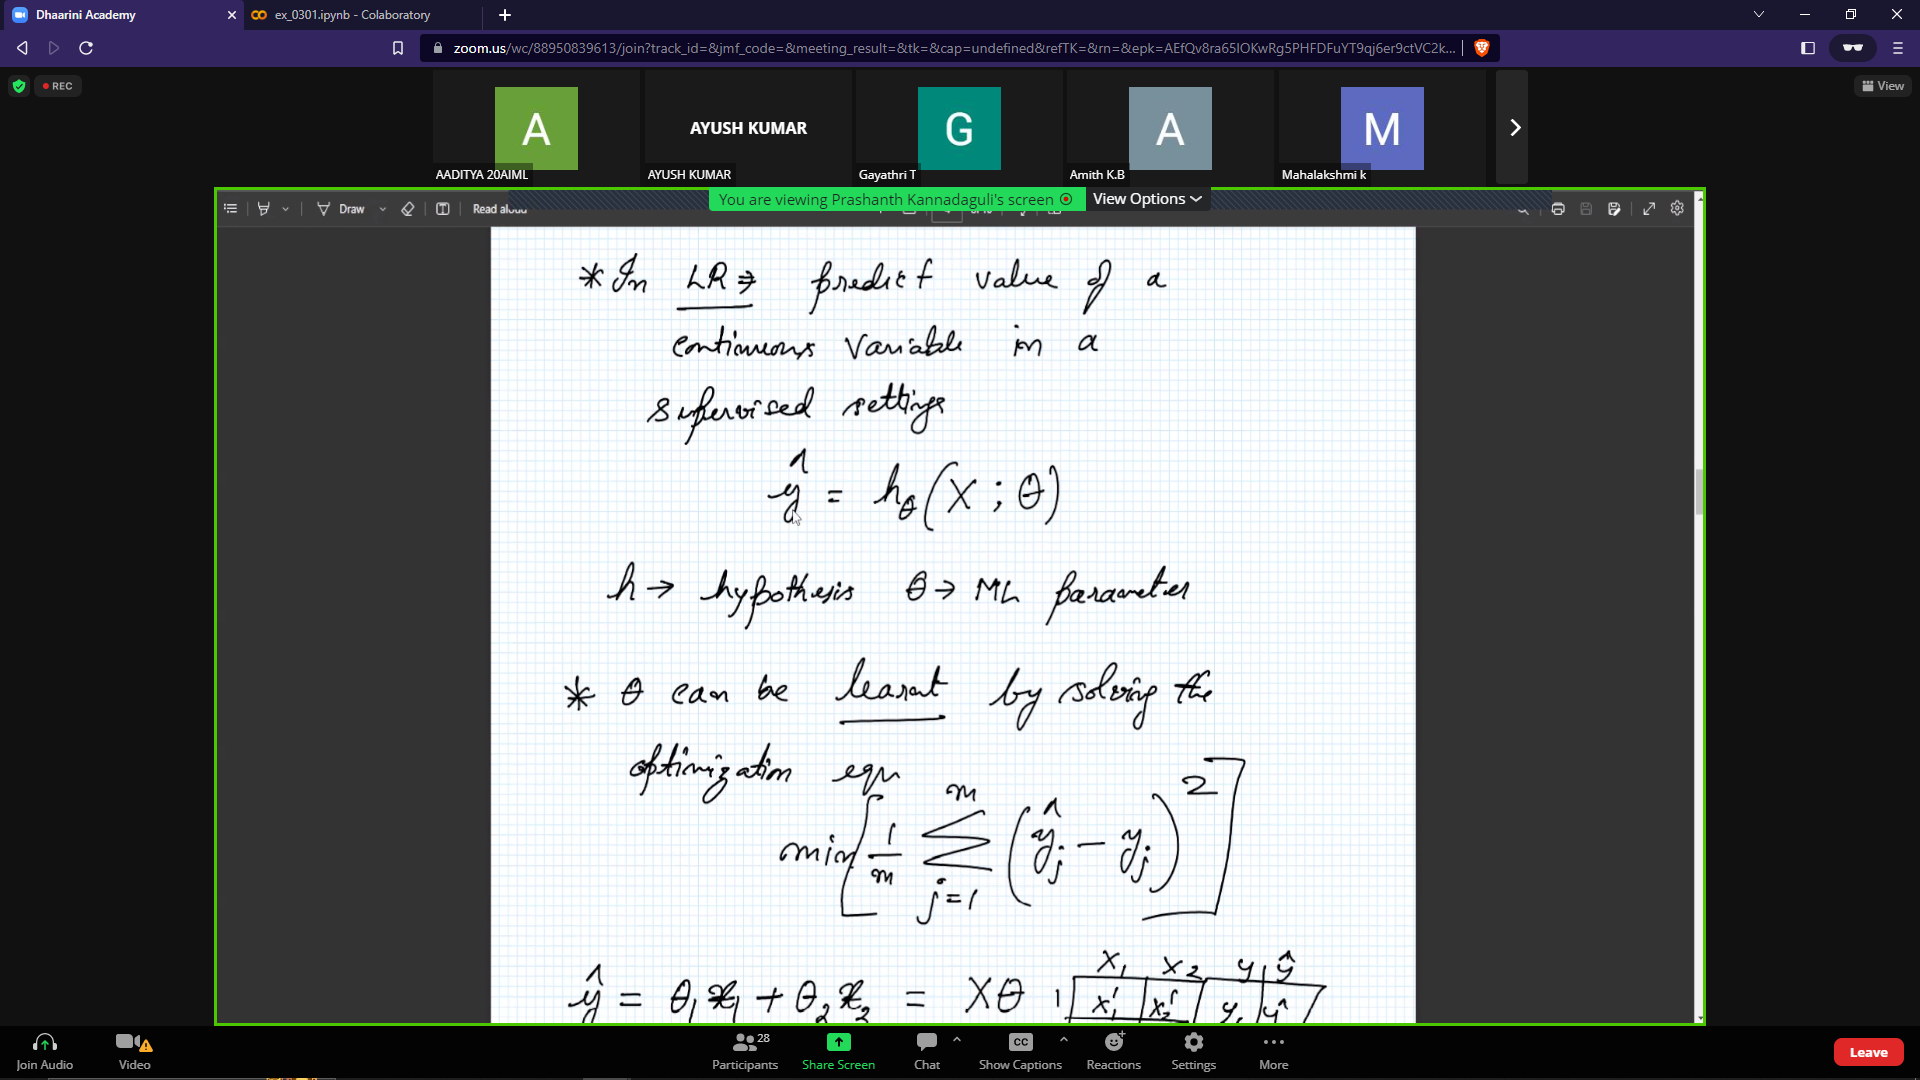 Dhaarini Academy
ex_0301.ipynb - Colaboratory
zoom.us/wc/88950839613/join?track_id=&jmf_code=&meeting_result=&tk=&cap=undefined&refTK=&rn=&epk=AEfQv8ra65IOKwRg5PHFDFuYT9qj6er9ctVC2k...
REC
View
A
AYUSH KUMAR
G
A
M
AADITYA 20AIML
AYUSH KUMAR
Gayathri T
Amith K.B
Mahalakshmi k
You are viewing Prashanth Kannadaguli's screen
View Options
Draw
Read aloud
* In LR ⇒ predict value of a
continuous variable in a
supervised settings
ŷ = hθ(X ; θ)
h → hypothesis θ → ML parameter
* θ can be learnt by solving the
optimization equn
min[1/m Σ_{j=1}^{m} (ŷj − yj)²]
x1 x2 y ŷ
ŷ = θ1 x1 + θ2 x2 = Xθ
Join Audio
Video
Participants 28
Share Screen
Chat
CC
Show Captions
Reactions
Settings
More
Leave